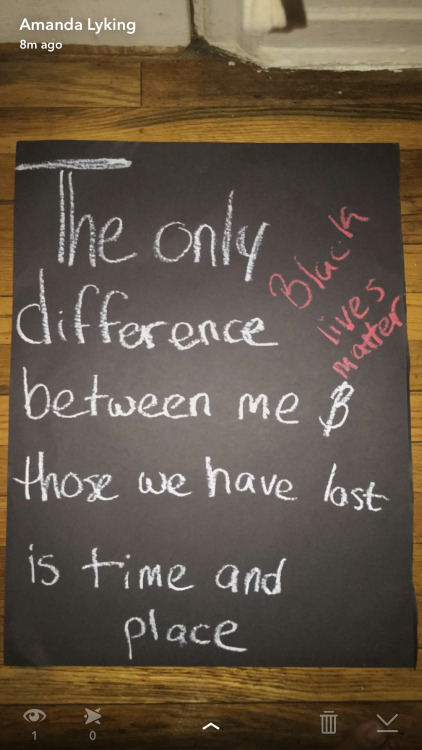 Amanda Lyking
8m ago
The only
Black
lives
matter
difference
between me &
those we have lost
is time and
place
1
0